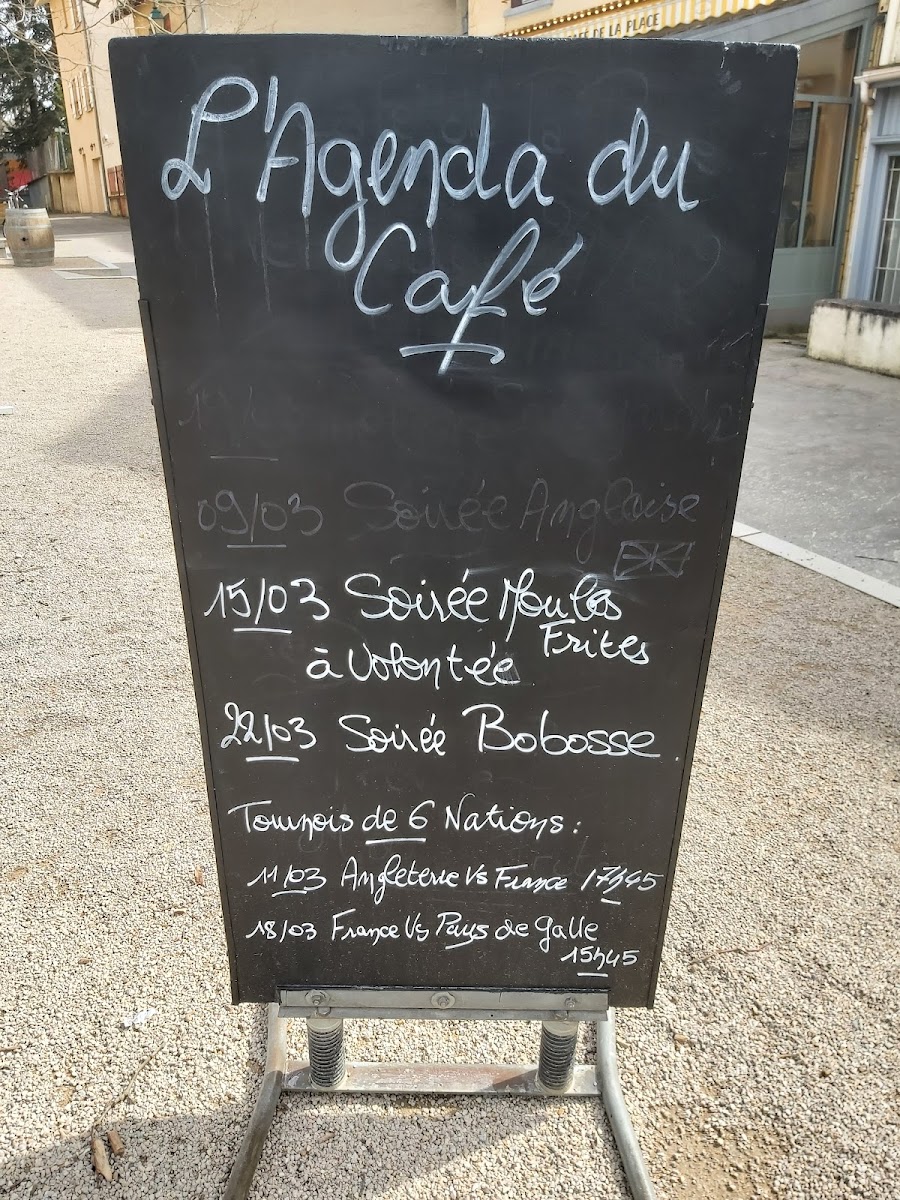 DE LA PLACE
L'Agenda du
Café
09/03 Soirée Anglaise
15/03 Soirée Moules
Frites
à volontée
22/03 Soirée Bobosse
Tournois de 6 Nations :
11/03 Angleterre Vs France 17h45
18/03 France Vs Pays de Galle
15h45